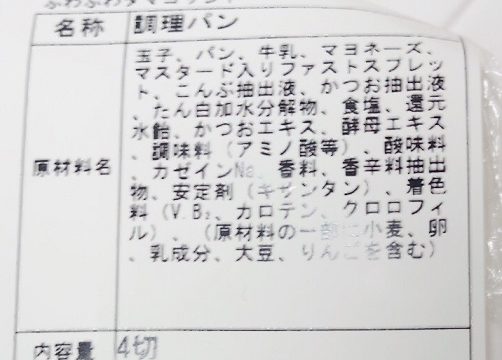 名称 調理パン
原材料名
玉子、パン、牛乳、マヨネーズ、
マスタード入りファストスプレッ
ト、こんぶ抽出液、かつお抽出液
、たん白加水分解物、食塩、還元
水飴、かつおエキス、酵母エキス
、調味料（アミノ酸等）、酸味料
、カゼインNa、香料、香辛料抽出
物、安定剤（キサンタン）、着色
料（V.B₂、カロテン、クロロフィ
ル）、（原材料の一部に小麦、卵
、乳成分、大豆、りんごを含む）
内容量 4切